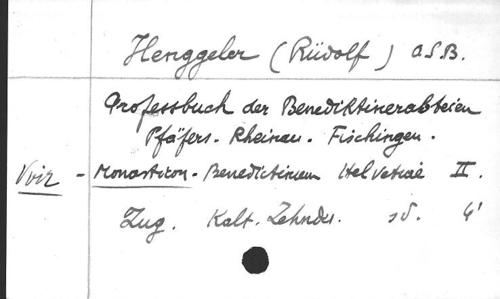 Henggeler (Rüdolf) O.S.B.
Professbuch der Benediktinerabteien
Pfäfers. Rheinau. Fischingen.
Voir - Monasticon-Benedictinum Helvetiae II.
Zug. Kalt. Zehnder. sd. 4'